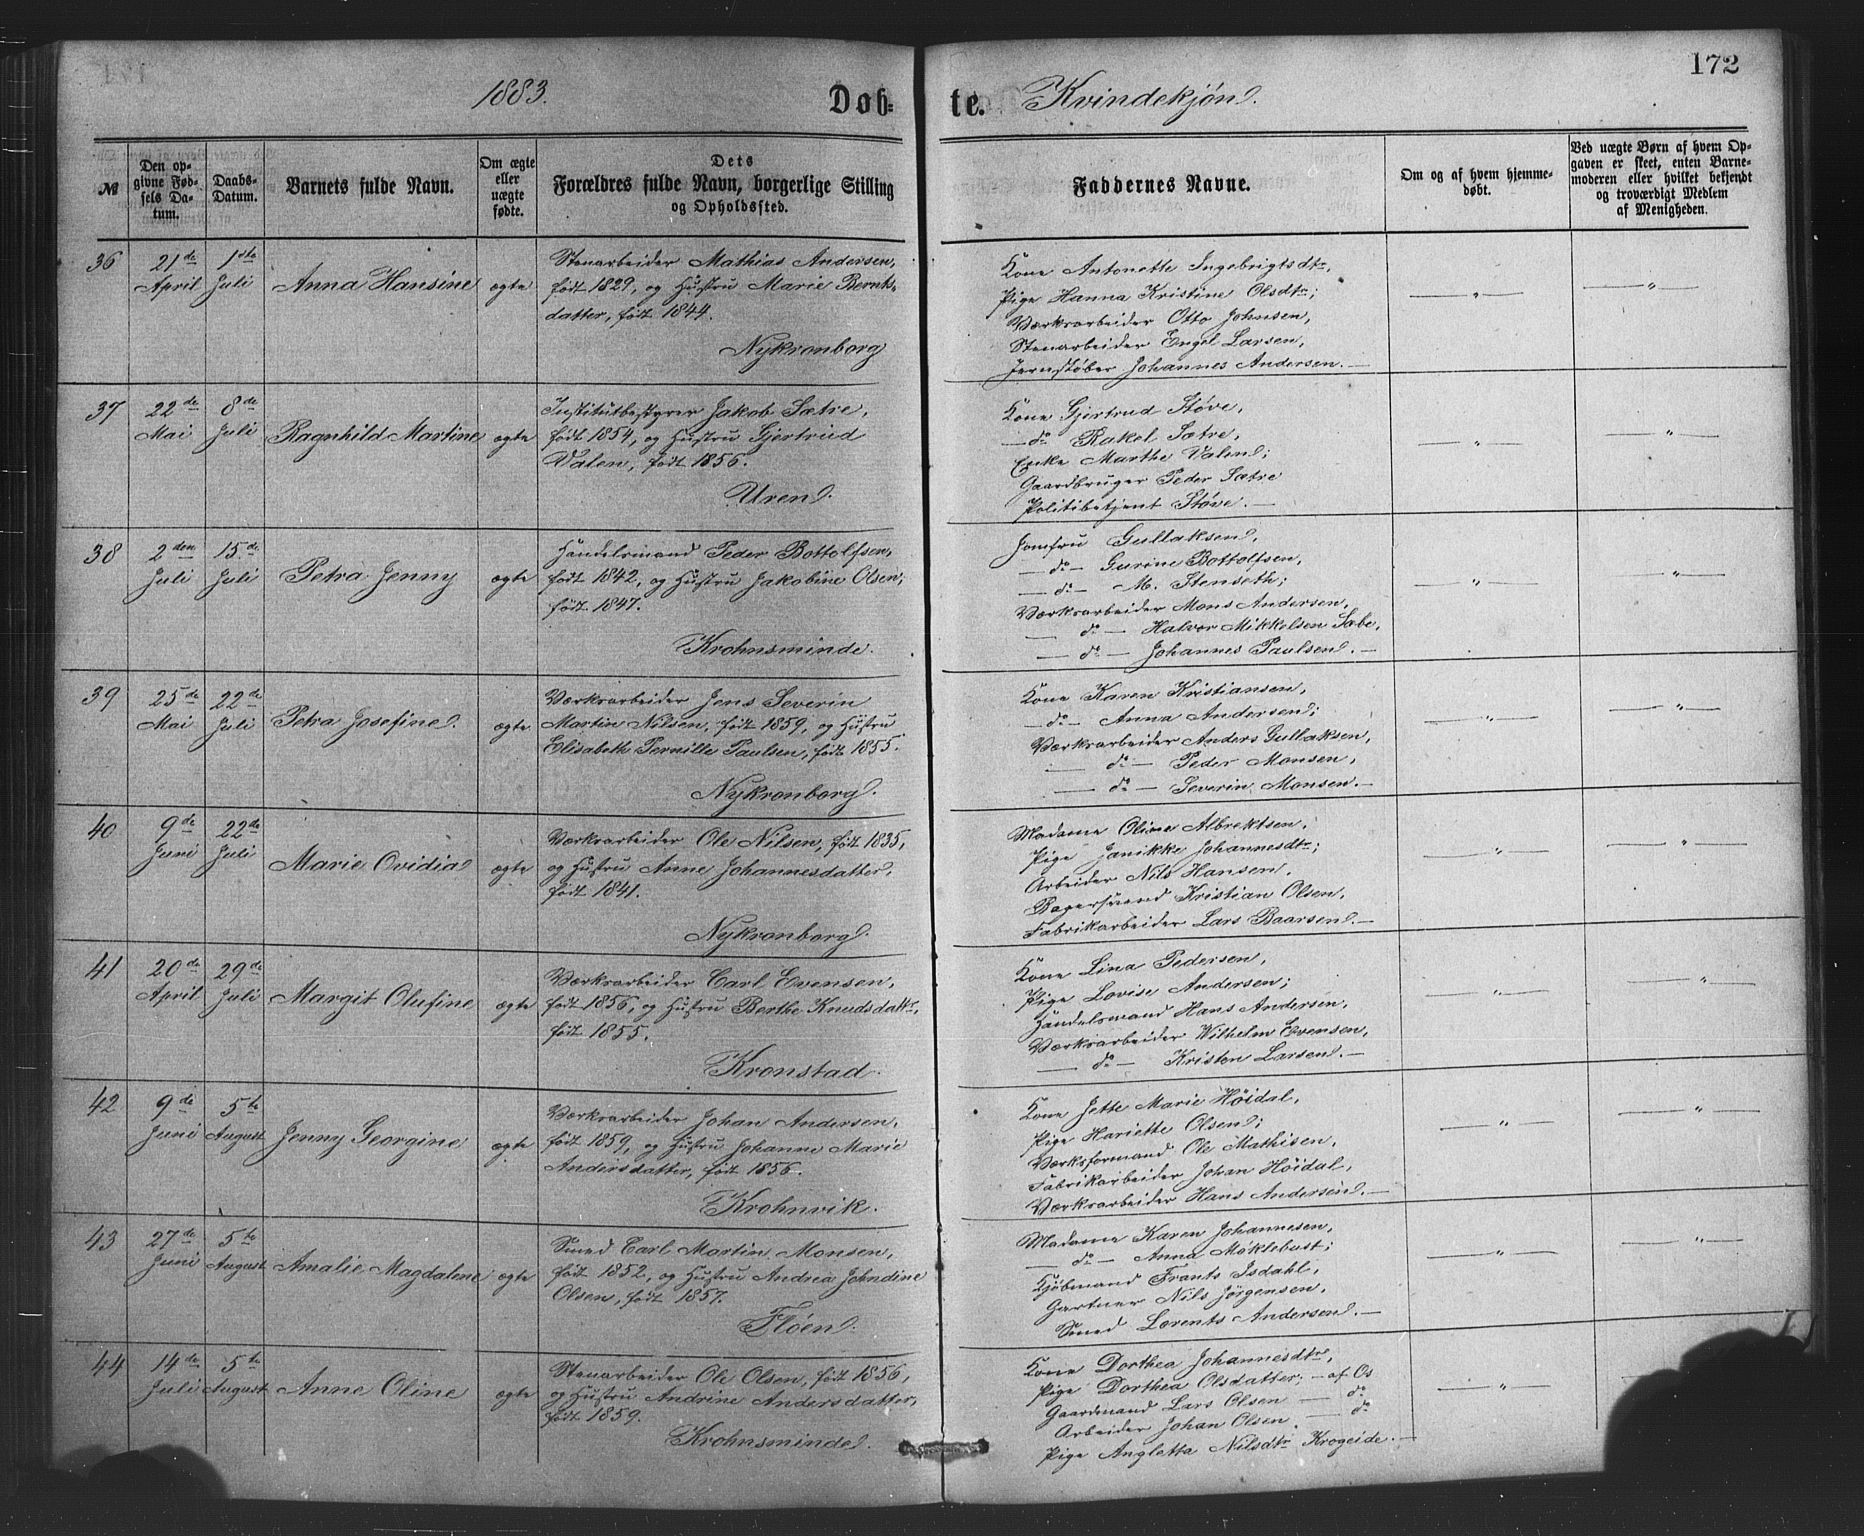 172
1883.
Døb-
te.
Kvindekjøn.
№
Den op-
givne Fød-
sels Da-
tum.
Daabs-
Datum.
Barnets fulde Navn.
Om ægte
eller
uægte
fødte.
Dets
Forældres fulde Navn, borgerlige Stilling
og Opholdssted.
Faddernes Navne.
Om og af hvem hjemme-
døbt.
Ved uægte Børn af hvem Op-
gaven er skeet, enten Barne-
moderen eller hvilket bekjendt
og troværdigt Medlem
af Menigheden.
36
21de
April
1ste
Juli
Anna Hansine
ægte
Stenarbeider Mathias Andersen,
født 1829, og Hustru Marie Bernts-
datter, født 1844.
Nykronborg
Kone Antonette Ingebrigtsdtr,
Pige Hanna Kristine Olsdtr;
Værksarbeider Otto Johnsen,
Stenarbeider Engel Larsen,
Jernstøber Johannes Andersen. —
— " —
— " —
37
22de
Mai
8de
Juli
Ragnhild Martine
ægte
Institutbestyrer Jakob Sætre,
født 1854, og Hustru Gjertrud
Valen, født 1856.
Uren.
Kone Gjertrud Støve,
— do Rakel Sætre,
Enke Marthe Valen;
Gaardbruger Peder Sætre
Politibetjent Støve. —
— " —
— " —
38
2den
Juli
15de
Juli
Petra Jenny
ægte
Handelsmand Peder Bottolfsen,
født 1842, og Hustru Jakobine Olsen,
født 1847.
Krohnsminde.
Jomfru Gullaksen,
— do — Gurine Bottolfsen,
— do — M. Stenseth;
Værksarbeider Mons Andersen,
— do — Halvor Mikkelsen Sæbø,
— do — Johannes Paulsen. —
— " —
— " —
39
25de
Mai
22de
Juli
Petra Josefine.
ægte
Værksarbeider Jens Severin
Martin Nilsen, født 1859, og Hustru
Elisabeth Pernille Paulsen, født 1855.
Nykronborg.
Kone Karen Kristiansen,
— do — Anna Andersen;
Værksarbeider Anders Gullaksen,
— do — Peder Monsen,
— do — Severin Monsen. —
— " —
— " —
40
9de
Juni
22de
Juli
Marie Ovidia
ægte
Værksarbeider Ole Nilsen, født 1835,
og Hustru Anne Johannesdatter,
født 1841.
Nykronborg.
Madame Oline Albrektsen,
Pige Janikke Johannesdtr;
Arbeider Nils Hansen,
Bagersvend Kristian Olsen,
Fabrikarbeider Lars Baarsen. —
— " —
— " —
41
20de
April
29de
Juli
Margit Olufine
ægte
Værksarbeider Carl Evensen,
født 1856, og Hustru Berthe Knudsdatr,
født 1855.
Kronstad.
Kone Lina Pedersen,
Pige Lovise Andersen;
Handelsmand Hans Andersen,
Værksarbeider Wilhelm Evensen,
— do — Kristen Larsen. —
— " —
— " —
42
9de
Juni
5te
August
Jenny Georgine
ægte
Værksarbeider Johan Andersen,
født 1859, og Hustru Johanne Marie
Andersdatter, født 1856.
Krohnvik.
Kone Jette Marie Høidal,
Pige Hariette Olsen;
Værksformand Ole Mathisen,
Fabrikarbeider Johan Høidal,
Værksarbeider Hans Andersen. —
— " —
— " —
43
27de
Juni
5te
August
Amalie Magdalene
ægte
Smed Carl Martin Monsen,
født 1852, og Hustru Andrea Johndine
Olsen, født 1857.
Fløen.
Madame Karen Johannesen,
— do — Anna Møklebust;
Kjøbmand Frants Isdahl,
Gartner Nils Jørgensen,
Smed Lorents Andersen. —
— " —
— " —
44
14de
Juli
5te
August
Anne Oline
ægte
Stenarbeider Ole Olsen, født 1856,
og Hustru Andrine Andersdatter,
født 1859.
Krohnsminde.
Kone Dorthea Johannesdtr,
Pige Dorthea Olsdatter; — af Os
Gaardmand Lars Olsen — do
Arbeider Johan Olsen — do
Pige Angletta Nilsdtr Krogeide. —
— " —
— " —